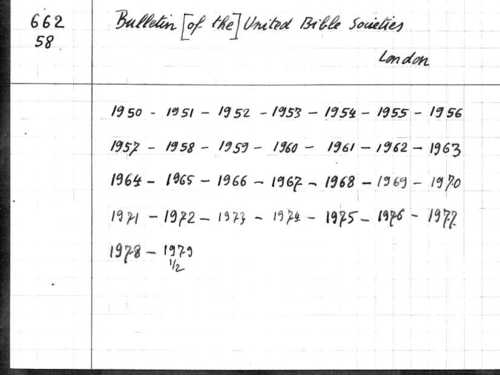 662
58
Bulletin [of the] United Bible Societies
London
1950 - 1951 - 1952 - 1953 - 1954 - 1955 - 1956
1957 - 1958 - 1959 - 1960 - 1961 - 1962 - 1963
1964 - 1965 - 1966 - 1967 - 1968 - 1969 - 1970
1971 - 1972 - 1973 - 1974 - 1975 - 1976 - 1977
1978 - 1979
1/2